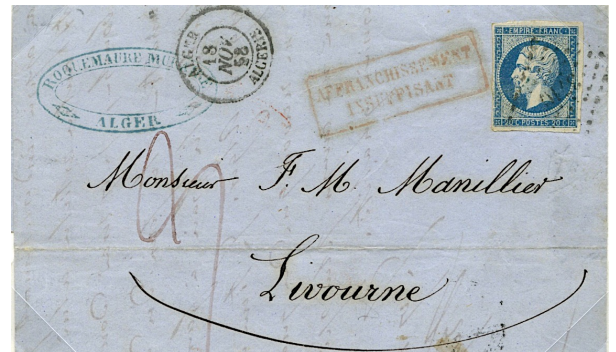 ALGER
ALGER
ALGÉRIE
18
NOV
58
AFFRANCHISSEMENT
INSUFFISANT
EMPIRE FRANC
20 C POSTES 20 C
Monsieur F. M. Manillier
Livourne